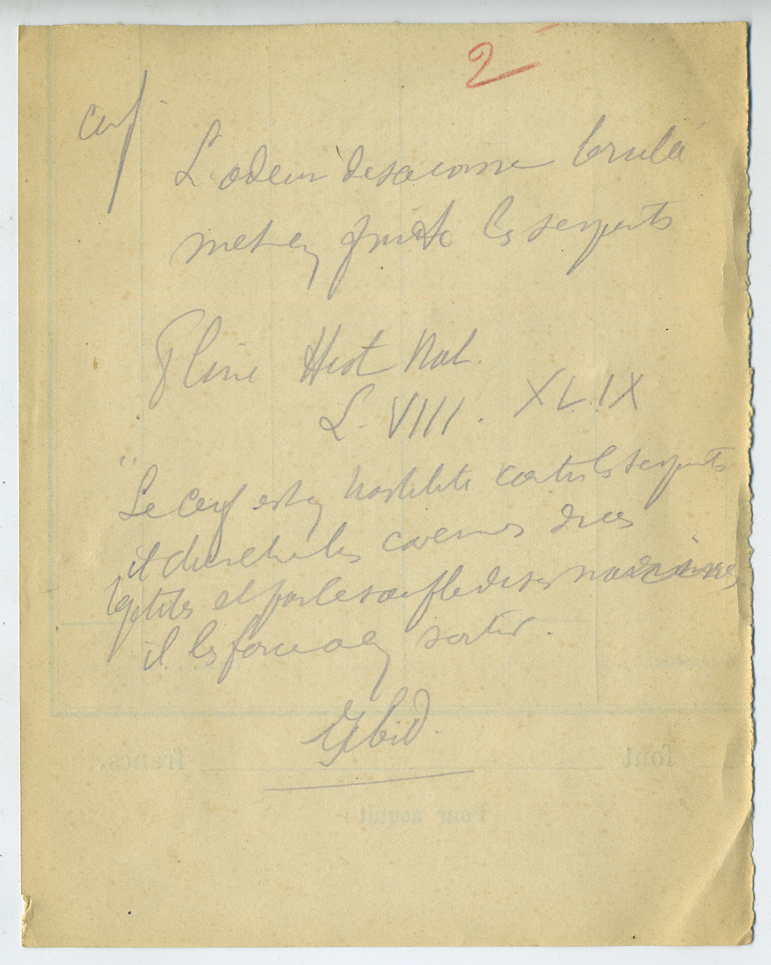 2
cerf
L'odeur de sa corne brulé
met en fuite les serpents
Pline Hist Nat.
L. VIII. XLIX
"Le cerf est en hostilité contre les serpents
il cherche les cavernes de ces
reptiles et par le souffle de ses narines
il les force à en sortir.
Ibid.
font francs.
Pour acquit